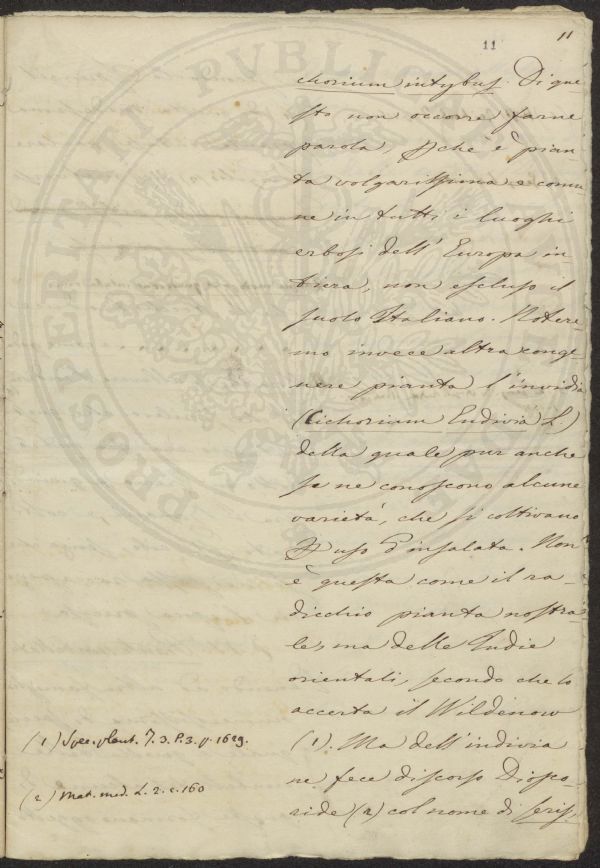 11
11
chorium intybus. Di que
sto non occorre farne
parola, pchè è pian
ta volgarissima e comu
ne in tutti i luoghi
erbosi dell' Europa in
tiera, non escluso il
suolo Italiano. Notere
mo invece altra conge
nere pianta l'invidia
(Cichorium Endivia L.)
della quale pur anche
se ne conoscono alcune
varietá, che si coltivano
p uso d'insalata. Non
è questa come il ra-
dicchio pianta nostra
le, ma delle Indie
orientali, secondo che lo
accerta il Wildenow
(1). Ma dell'indivia
ne fece discorso Diosco-
ride (2) col nome di seris,
(1) Spec. plant. T. 3. P. 3. p. 1629.
(2) Mat. med. L. 2. c. 160
PROSPERITATI PVBLICAE